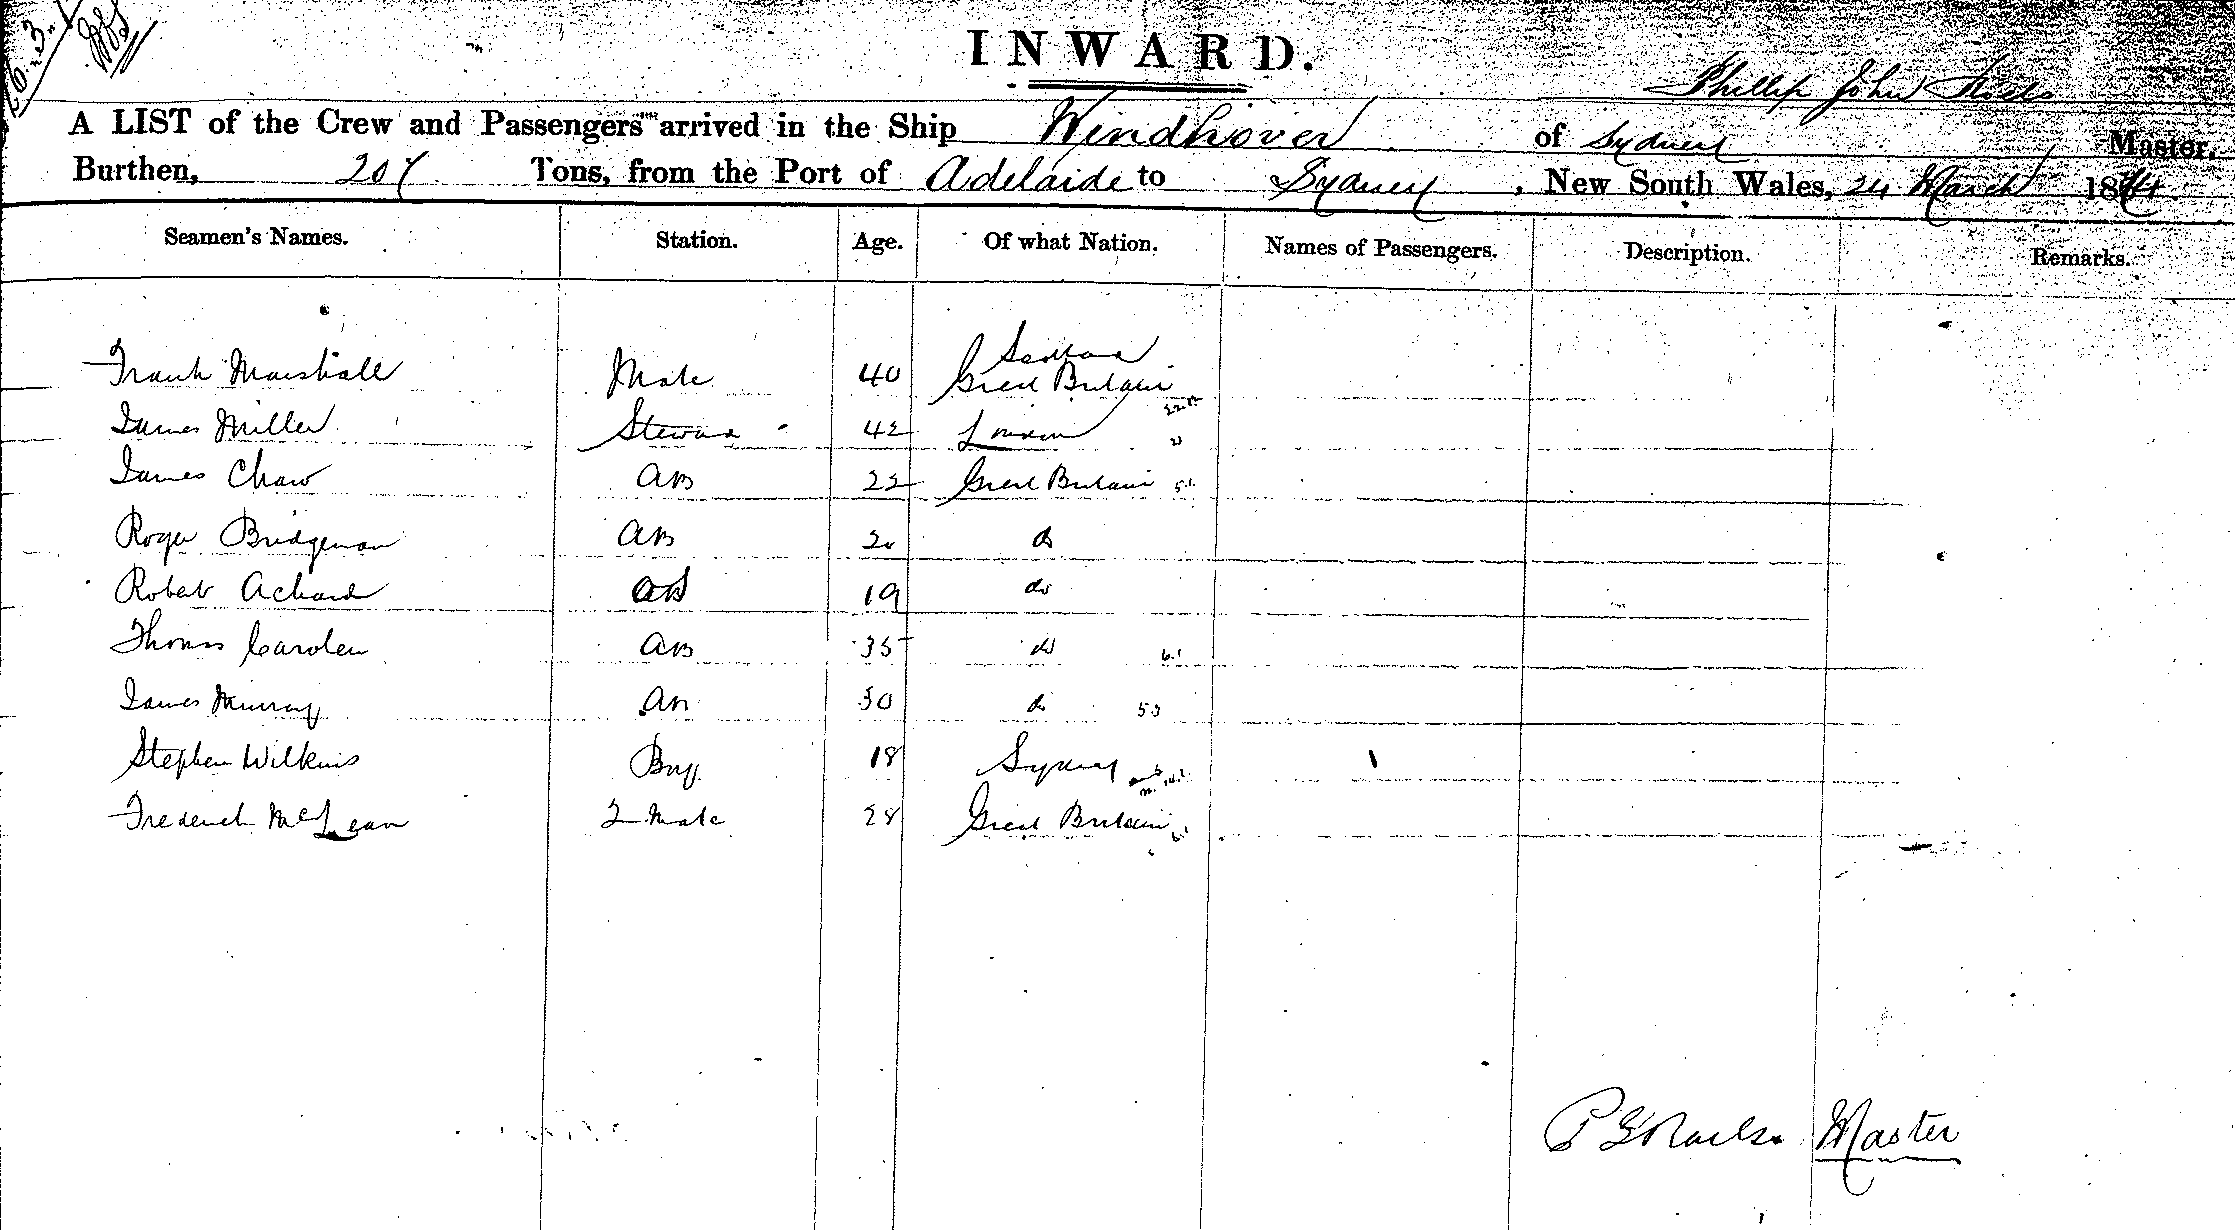 INWARD.
Phillip John
A LIST of the Crew and Passengers arrived in the Ship Windhover of Sydney Master,
Burthen, 207 Tons, from the Port of Adelaide to Sydney, New South Wales, 24 March 18
Seamen's Names. Station. Age. Of what Nation. Names of Passengers. Description. Remarks.
Scotland
Frank Marshall Mate 40 Great Britain
James Miller Steward 42 London
James Chaw AB 22 Great Britain
Roger Bridgeman AB 20 do
Robert Achard 19 do
Thomas Carolen AB 35 do
James Murray AB 30 do
Stephen Wilkins Boy 18 Sydney
Frederick McLean 2 Mate 28 Great Britain
Master